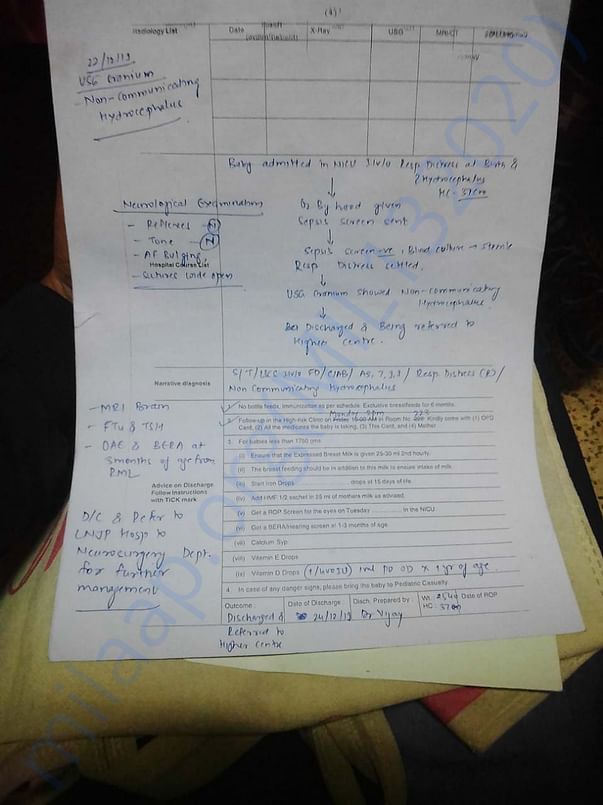 (4)
Radiology List
Date
X-Ray
USG
MRI/CT
22/12/19
USG Cranium
- Non-Communicating
Hydrocephalus
Baby admitted in NICU i/v/o Resp Distress at Birth &
? Hydrocephalus
HC - 37cm
Neurological Examination
- Reflexes - N
- Tone - N
- AF Bulging
Hospital Course List
- Sutures wide open
O2 By hood given
Sepsis screen sent
Sepsis screen -ve, Blood culture → sterile
Resp Distress settled.
USG Cranium showed Non-Communicating
Hydrocephalus.
Discharged & Being referred to
Higher centre.
Narrative diagnosis
Resp. Distress (R)/
Non Communicating Hydrocephalus
- MRI Brain
- FT4 & TSH
- OAE & BERA at
3months of age from
RML
Advice on Discharge
Follow Instructions
with TICK mark
D/C & Refer to
LNJP Hosp to
Neurosurgery Dept.
for further
management
1. No bottle feeds, Immunization as per schedule. Exclusive breastfeeds for 6 months.
Monday 2pm 223
2. Follow-up in the High-risk Clinic on Friday 10:00 AM in Room No. Kindly come with (1) OPD
Card, (2) All the medicines the baby is taking, (3) This Card, and (4) Mother
3. For babies less than 1750 gms.
(i) Ensure that the Expressed Breast Milk is given 25-30 ml 2nd hourly.
(ii) The breast feeding should be in addition to this milk to ensure intake of milk.
(iii) Start Iron Drops drops at 15 days of life
(iv) Add HMF 1/2 sachet in 25 ml of mothers milk as advised.
(v) Get a ROP Screen for the eyes on Tuesday in the NICU.
(vi) Get a BERA/hearing screen at 1-3 months of age
(vii) Calcium Syp.
(viii) Vitamin E Drops
(ix) Vitamin D Drops 1ml PO OD x 1yr of age.
4. In case of any danger signs, please bring the baby to Pediatric Casualty
Outcome : Date of Discharge : Disch. Prepared by : Wt. Date of ROP
HC :
Discharged & 24/12/19 Dr Vijay
Referred to
Higher centre
milaap.org